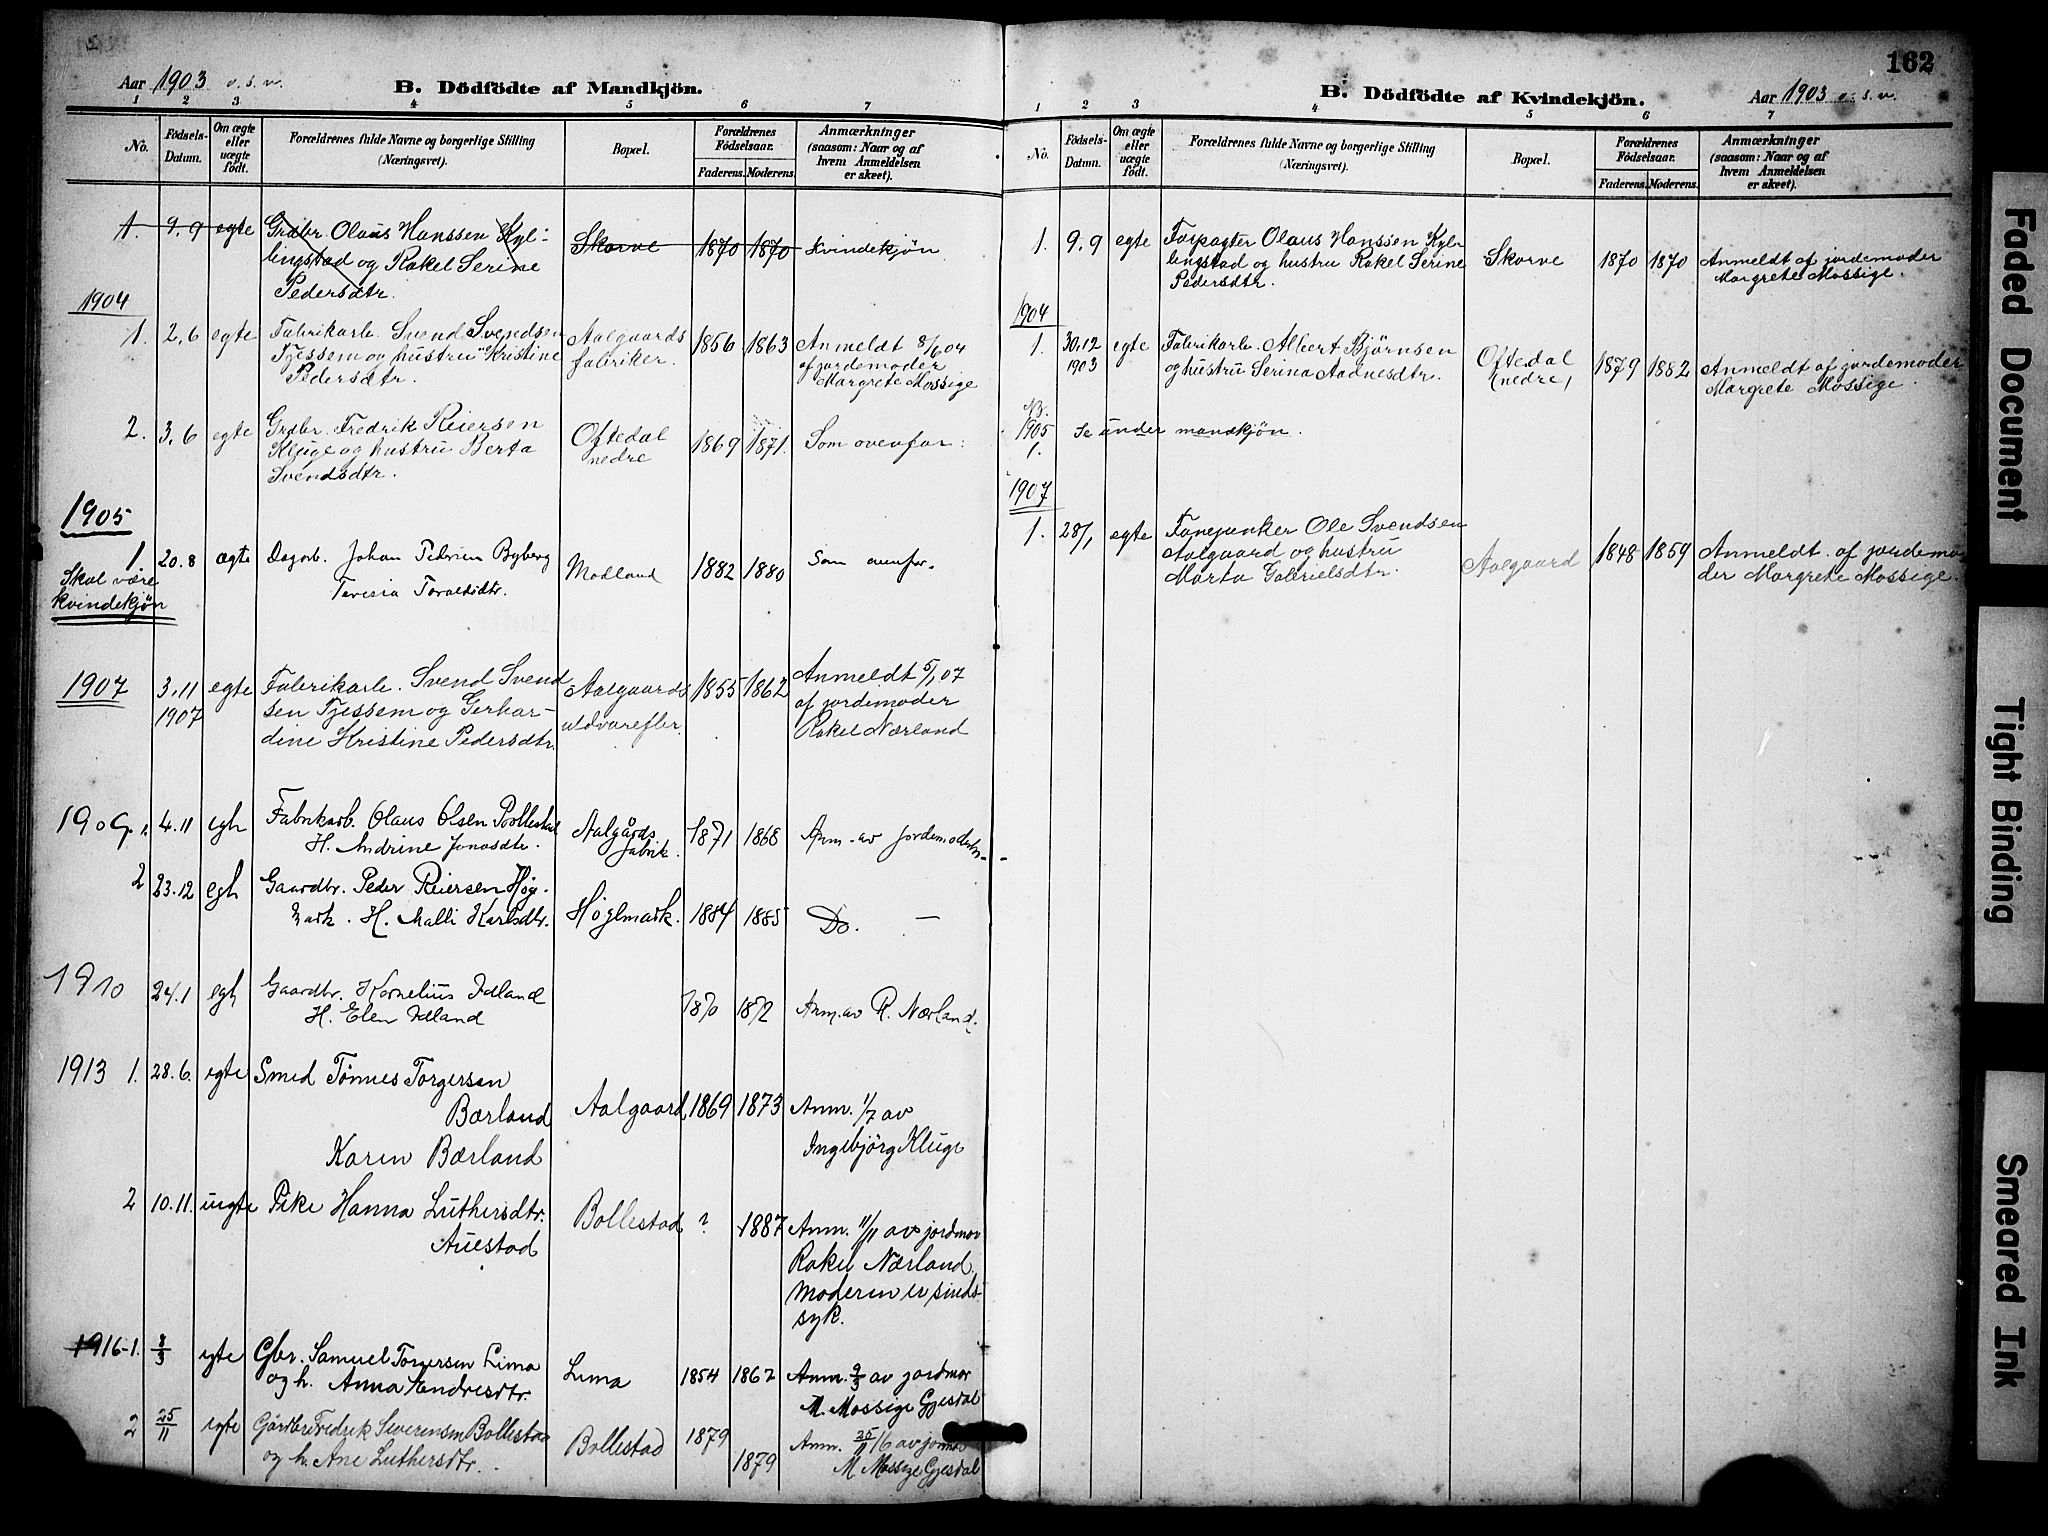 Aar 1903 o. s. v.
B. Dödfödte af Mandkjön.
1 2 3 4 5 6 7
No.
Födsels-Datum.
Om ægte eller uægte födt.
Forældrenes fulde Navne og borgerlige Stilling
(Næringsvei).
Bopæl.
Forældrenes Födselsaar.
Faderens. Moderens.
Anmærkninger
(saasom: Naar og af
hvem Anmeldelsen
er skeet).
1. 9.9 egte Grdbr. Olaus Hanssen Kyl-
lingstad og Rakel Serine
Pedersdtr.
Skorve 1870 1870 Kvindekjön
1904
1. 2.6 egte Fabrikarb. Svend Svendsen
Tjessem og hustru Kristine
Pedersdtr.
Aalgaards
fabriker.
1856 1863 Anmeldt 8/6 04
af jordemoder
Margrete Mossige
2. 3.6 egte Grdbr. Fredrik Reiersen
Kluge og hustru Berta
Svendsdtr.
Oftedal
nedre
1869 1871. Som ovenfor:
1905
1. 20.8 ægte Dagarb. Johan Pedersen Byberg
Teresia Toralfsdtr.
Madland 1882 1880 Som ovenfor.
Skal være
kvindekjøn
1907 3.11 egte Fabrikarb. Svend Svend
1907
sen Tjessem og Gerhar-
dine Kristine Pedersdtr.
Aalgaards
uldvarefbr.
1855 1862 Anmeldt 5/1 07
af jordemoder
Rakel Nærland
1909. 1. 4.11 egte Fabrikarb. Olaus Olsen Bollestad
H. Andrine Jonasdtr.
Aalgårds
fabrik.
1871 1868 Anm. av jordemoderen
2 23.12 egte Gaardbr. Peder Reiersen Høgl-
mark. H. Malli Karlsdtr.
Høglmark. 1884 1885 Do. —
1910 24.1 egte Gaardbr. Kornelius Idland
H. Elen Idland
1870 1872 Anm. av R. Nærland.
1913 1. 28.6. egte Smed Tönnes Torgersen
Bærland
Karen Bærland
Aalgaard 1869 1873 Anm. 1/7 av
Ingebjörg Kluge
2 10.11. uegte Pike Hanna Luthersdtr.
Auestad
Bollestad ? 1887 Anm. 11/11 av jordmor
Rakel Nærland.
Moderen er sinds-
syk.
1916 1. 8/3 egte Gbr. Samuel Torgersen Lima
og h. Anna Endresdtr.
Lima 1854 1862 Anm. 9/3 av jordmor
M. Mossige Gjesdal
2 25/11 egte Gårdbr. Fredrik Severensen Bollestad
og h. Ane Luthersdtr.
Bollestad 1879 1879 Anm. 25/11 16 av jormor
M Mossige Gjesdal
162
B. Dödfödte af Kvindekjön.
Aar 1903 o. s. v.
1 2 3 4 5 6 7
No.
Födsels-Datum.
Om ægte eller uægte födt.
Forældrenes fulde Navne og borgerlige Stilling
(Næringsvei).
Bopæl.
Forældrenes Födselsaar.
Faderens. Moderens.
Anmærkninger
(saasom: Naar og af
hvem Anmeldelsen
er skeet).
1. 9.9 egte Forpagter Olaus Hanssen Kyl-
lingstad og hustru Rakel Serine
Pedersdtr.
Skorve 1870 1870 Anmeldt af jordemoder
Margrete Mossige.
1904
1. 30.12 egte Fabrikarb. Albert Björnsen
1903
og hustru Serina Aadnesdtr.
Oftedal
(nedre)
1879 1882 Anmeldt af jordemoder
Margrete Mossige.
NB.
1905 Se under mandkjön.
1.
1907
1. 28/1 egte Fanejunker Ole Svendsen
Aalgaard og hustru
Marta Gabrielsdtr.
Aalgaard 1848 1859 Anmeldt af jordemo
der Margrete Mossige.
Faded Document
Tight Binding
Smeared Ink